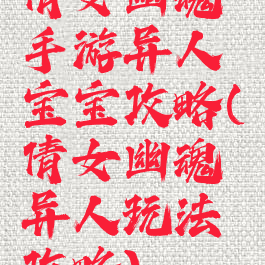 倩女幽魂
手游异人
宝宝攻略(
倩女幽魂
异人玩法
攻略)